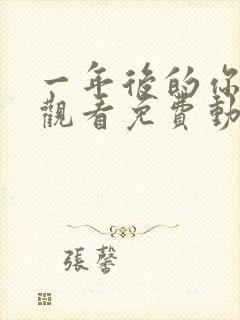 一年後的你
觀看免費動
張馨